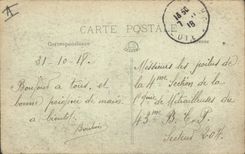 CARTE POSTALE
Correspondance
31-10-18
Bonjour à tous, et
bonne poignée de main
à bientôt
18 30
7
18
Messieurs les poilus de
la 4me Section de la
1re Cie de Mitrailleuses du
43me B. C. P.
Secteur 204